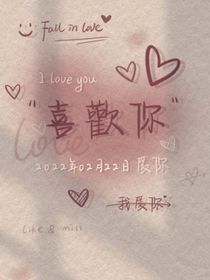 Fall in love
I love you
"喜歡你"
love
2022年02月22日 愛你
我愛你
Like & miss